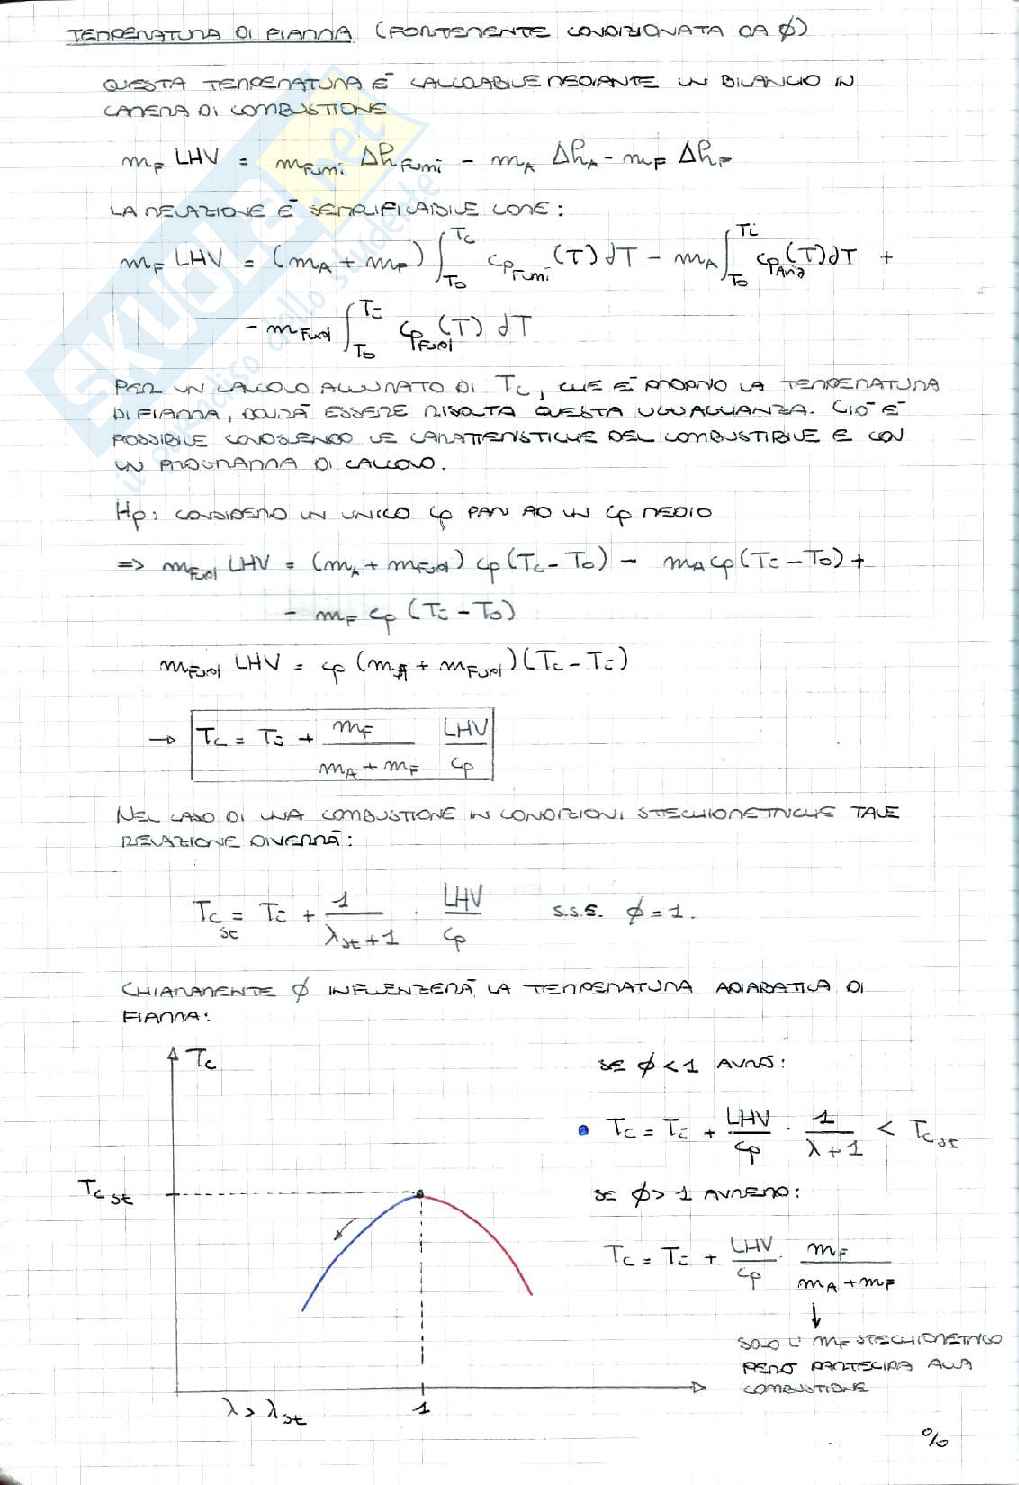 TEMPERATURA DI FIAMMA (FORTEMENTE CONDIZIONATA DA φ)
QUESTA TEMPERATURA È CALCOLABILE MEDIANTE UN BILANCIO IN
CAMERA DI COMBUSTIONE
m_F LHV = m_Fumi Δh_Fumi - m_A Δh_A - m_F Δh_F
LA RELAZIONE È SEMPLIFICABILE COME:
m_F LHV = (m_A + m_F) ∫_To^Tc cp_Fumi (T) dT - m_A ∫_To^Ti cp_Aria (T) dT +
- m_Fuel ∫_To^Ti cp_Fuel (T) dT
PER UN CALCOLO ACCURATO DI Tc, CHE È PROPRIO LA TEMPERATURA
DI FIAMMA, DOVRÀ ESSERE RISOLTA QUESTA UGUAGLIANZA. CIÒ È
POSSIBILE CONOSCENDO LE CARATTERISTICHE DEL COMBUSTIBILE E CON
UN PROGRAMMA DI CALCOLO.
Hp: CONSIDERO UN UNICO cp PARI AD UN cp MEDIO
=> m_Fuel LHV = (m_A + m_Fuel) cp (Tc - To) - m_A cp (Ti - To) +
- m_F cp (Ti - To)
m_Fuel LHV = cp (m_A + m_Fuel) (Tc - Ti)
→ Tc = Ti + m_F / (m_A + m_F) LHV / cp
NEL CASO DI UNA COMBUSTIONE IN CONDIZIONI STECHIOMETRICHE TALE
RELAZIONE DIVERRÀ:
Tc_st = Ti + 1 / (λ_st + 1) · LHV / cp s.s.s. φ = 1.
CHIARAMENTE φ INFLUENZERÀ LA TEMPERATURA ADIABATICA DI
FIAMMA:
Tc
SE φ < 1 AVRÒ:
• Tc = Ti + LHV / cp · 1 / (λ + 1) < Tc_st
Tc st
SE φ > 1 AVREMO:
Tc = Ti + LHV / cp · m_F / (m_A + m_F)
↓
SOLO L' m_F STECHIOMETRICO
PERÒ PARTECIPA ALLA
COMBUSTIONE
λ > λ_st
1
%
SKUOLA.net
il paradiso dello studente